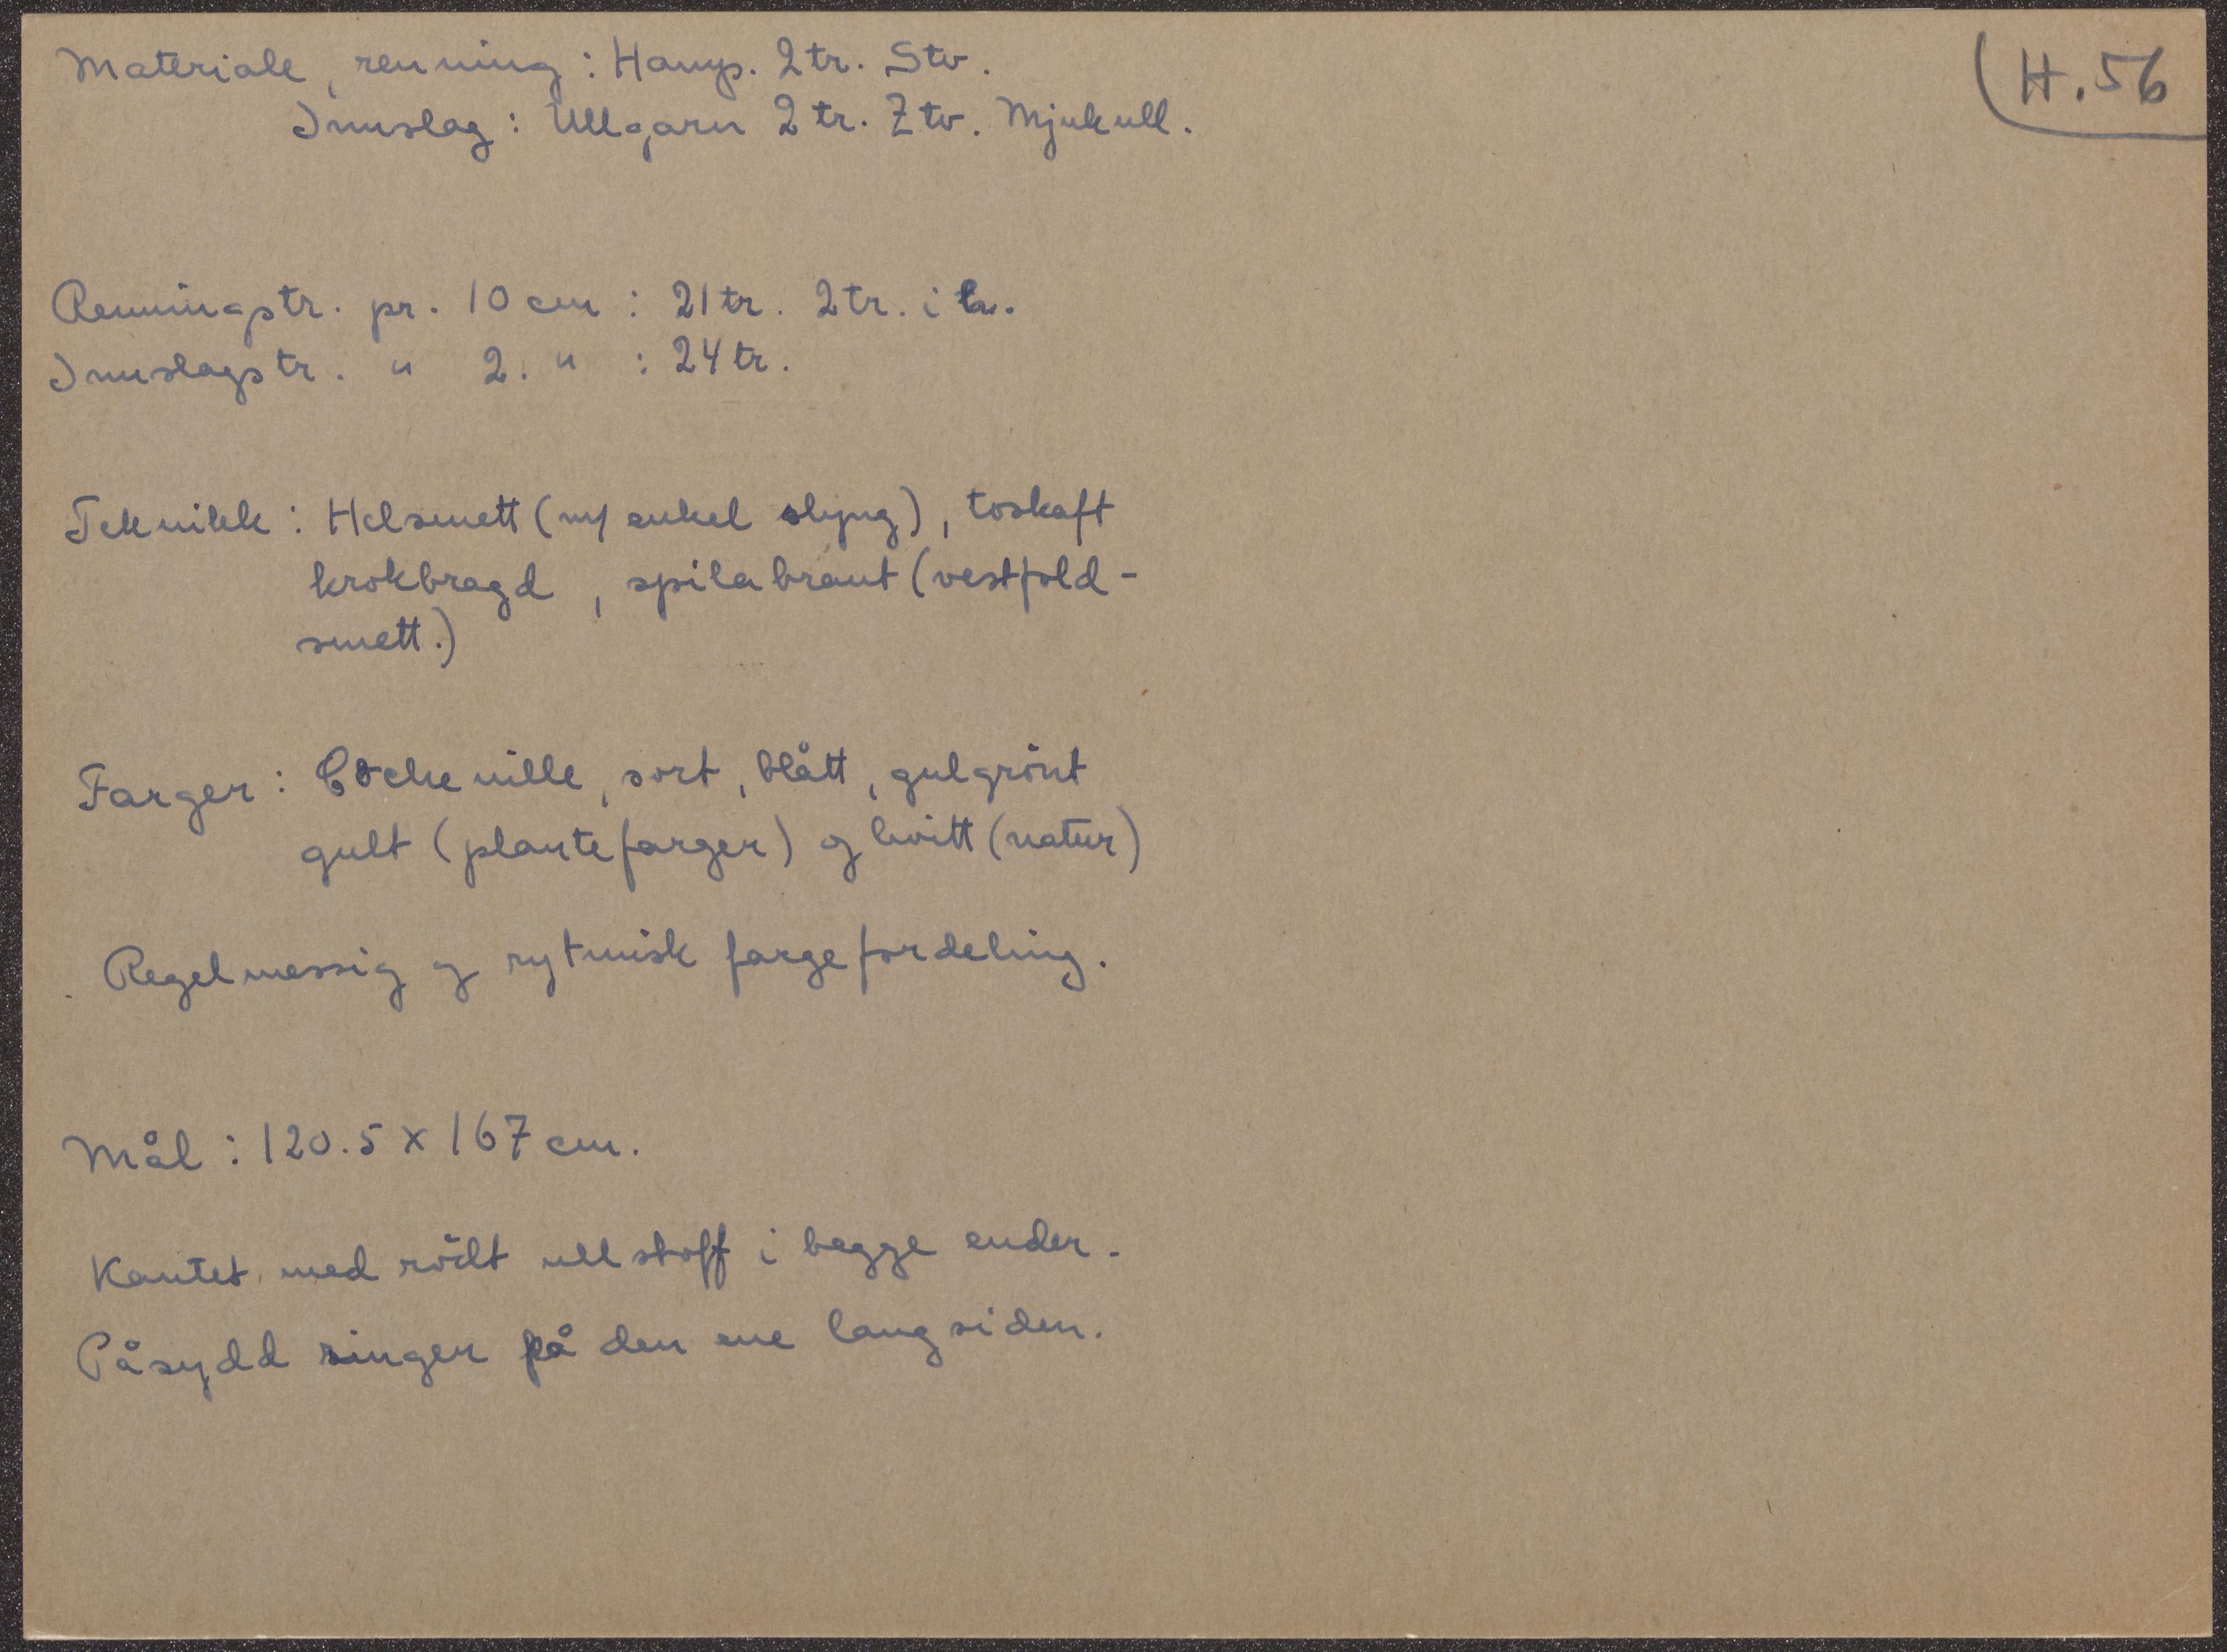 H.56
Materiale, renning: Hamp. 2 tr. Stv.
Innslag: Ullgarn 2 tr. Ztv. Mjukull.
Renningstr. pr. 10 cm: 21 tr. 2 tr. i
Innslagstr. " 2. " : 24 tr.
Teknikk: Helsmett (m/ enkel slyng), toskaft
krokbragd, spilabraut (vestfold-
smett.)
Farger: Cochenille, sort, blått, gulgrönt
gult (plantefarger) og hvitt (natur)
Regelmessig og rytmisk fargefordeling.
Mål: 120.5 x 167 cm.
Kantet med rödt ullstoff i begge ender.
Påsydd ringer på den ene langsiden.